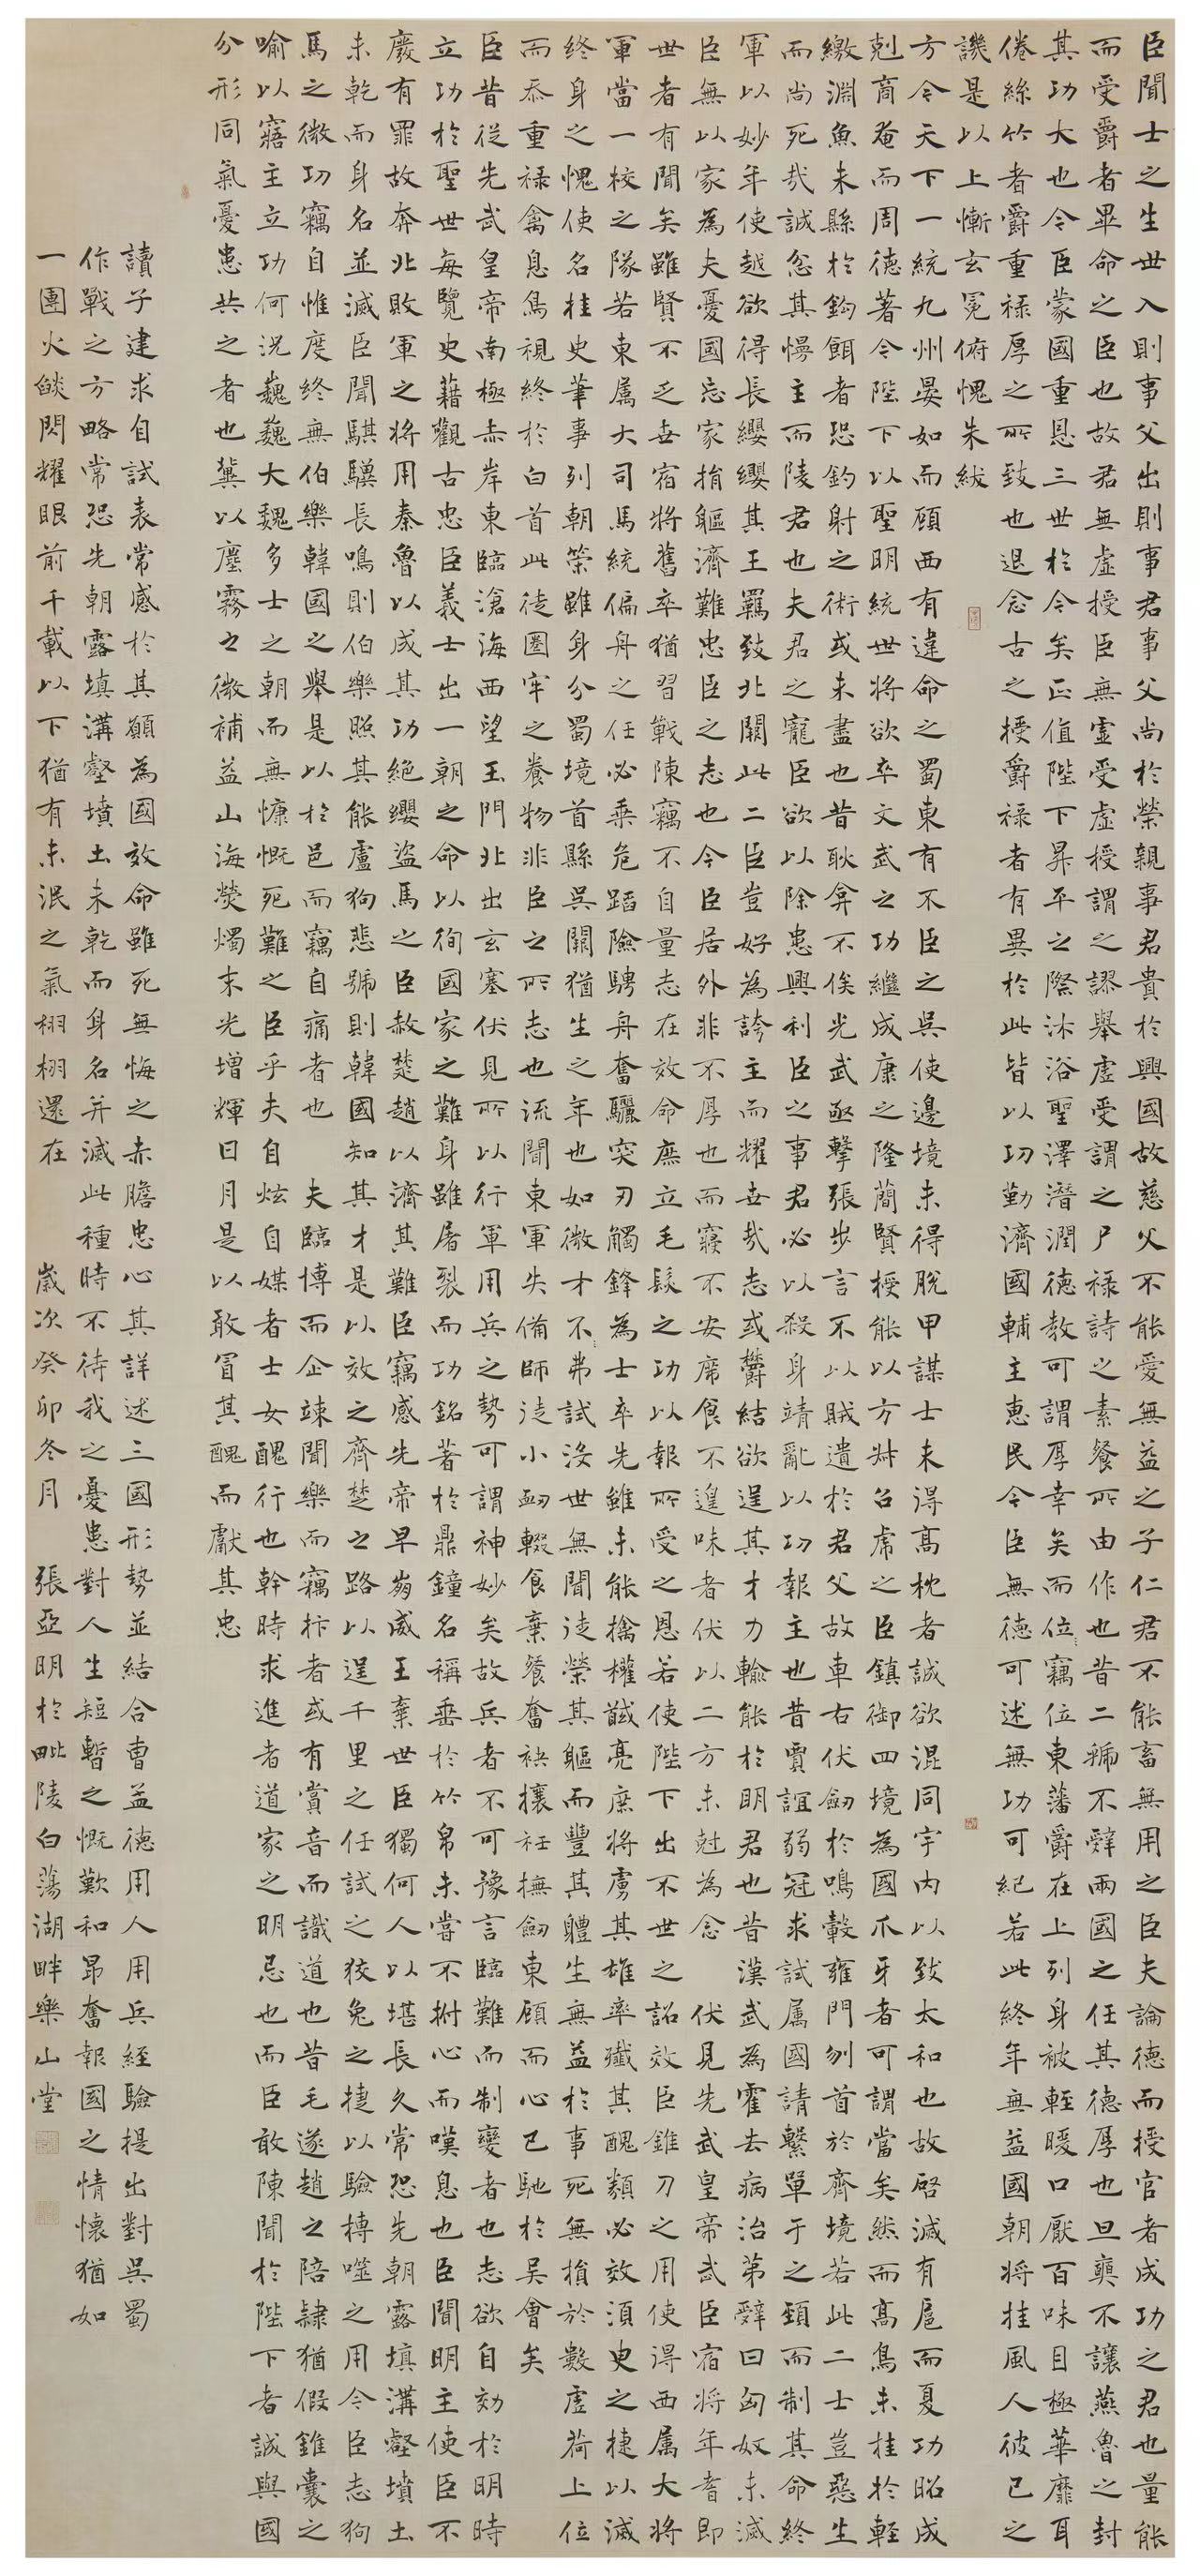 臣聞士之生世入則事父出則事君事父尚於榮親事君貴於興國故慈父不能愛無益之子仁君不能畜無用之臣夫論德而授官者成功之君也量能
而受爵者畢命之臣也故君無虛授臣無虛受虛授謂之謬舉虛受謂之尸祿詩之素餐所由作也昔二虢不辭兩國之任其德厚也旦奭不讓燕魯之封
其功大也今臣蒙國重恩三世於今矣正值陛下昇平之際沐浴聖澤潛潤德教可謂厚幸矣而位竊位東藩爵在上列身被輕暖口厭百味目極華靡耳
倦絲竹者爵重祿厚之所致也退念古之授爵祿者有異於此皆以功勤濟國輔主惠民今臣無德可述無功可紀若此終年無益國朝將挂風人彼己之
譏是以上慚玄冕俯愧朱紱
方今天下一統九州晏如而顧西有違命之蜀東有不臣之吳使邊境未得脫甲謀士未得高枕者誠欲混同宇內以致太和也故啓滅有扈而夏功昭成
剋商奄而周德著今陛下以聖明統世將欲卒文武之功繼成康之隆簡賢授能以方叔召虎之臣鎮御四境為國爪牙者可謂當矣然而高鳥未挂於輕
繳淵魚未縣於鉤餌者恐釣射之術或未盡也昔耿弇不俟光武亟擊張步言不以賊遺於君父故車右伏劍於鳴轂雍門刎首於齊境若此二士豈惡生
而尚死哉誠忿其慢主而陵君也夫君之寵臣欲以除患興利臣之事君必以殺身靖亂以功報主也昔賈誼弱冠求試屬國請繫單于之頸而制其命終
軍以妙年使越欲得長纓纓其王羈致北闕此二臣豈好為誇主而耀世哉志或鬱結欲逞其才力輸能於明君也昔漢武為霍去病治第辭曰匈奴未滅
臣無以家為夫憂國忘家捐軀濟難忠臣之志也今臣居外非不厚也而寢不安席食不遑味者伏以二方未尅為念 伏見先武皇帝武臣宿將年耆即
世者有聞矣雖賢不乏世宿將舊卒猶習戰陳竊不自量志在效命庶立毛髮之功以報所受之恩若使陛下出不世之詔效臣錐刀之用使得西屬大將
軍當一校之隊若東屬大司馬統偏舟之任必乘危蹈險騁舟奮驪突刃觸鋒為士卒先雖未能擒權馘亮庶將虜其雄率殲其醜類必效須臾之捷以滅
終身之愧使名挂史筆事列朝榮雖身分蜀境首縣吳闕猶生之年也如微才不弗試沒世無聞徒榮其軀而豐其體生無益於事死無損於數虛荷上位
而忝重祿禽息鳥視終於白首此徒圈牢之養物非臣之所志也流聞東軍失備師徒小衄輟食棄餐奮袂攘衽撫劍東顧而心已馳於吳會矣
臣昔從先武皇帝南極赤岸東臨滄海西望玉門北出玄塞伏見所以行軍用兵之勢可謂神妙矣故兵者不可豫言臨難而制變者也志欲自效於明時
立功於聖世每覽史籍觀古忠臣義士出一朝之命以徇國家之難身雖屠裂而功銘著於鼎鐘名稱垂於竹帛未嘗不拊心而嘆息也臣聞明主使臣不
廢有罪故奔北敗軍之將用秦魯以成其功絕纓盜馬之臣赦楚趙以濟其難臣竊感先帝早崩威王棄世臣獨何人以堪長久常恐先朝露填溝壑墳土
未乾而身名並滅臣聞騏驥長鳴則伯樂照其能盧狗悲號則韓國知其才是以效之齊楚之路以逞千里之任試之狡兔之捷以驗摶噬之用今臣志狗
馬之微功竊自惟度終無伯樂韓國之舉是以於邑而竊自痛者也 夫臨博而企竦聞樂而竊抃者或有賞音而識道也昔毛遂趙之陪隸猶假錐囊之
喻以寤主立功何況巍巍大魏多士之朝而無慷慨死難之臣乎夫自炫自媒者士女醜行也幹時求進者道家之明忌也而臣敢陳聞於陛下者誠與國
分形同氣憂患共之者也冀以塵霧之微補益山海熒燭末光增輝日月是以敢冒其醜而獻其忠
讀子建求自試表常感於其願為國效命雖死無悔之赤膽忠心其詳述三國形勢並結合曹孟德用人用兵經驗提出對吳蜀
作戰之方略常恐先朝露填溝壑墳土未乾而身名并滅此種時不待我之憂患對人生短暫之慨歎和昂奮報國之情懷猶如
一團火燄閃耀眼前千載以下猶有未泯之氣栩栩還在 歲次癸卯冬月 張亞明於毗陵白蕩湖畔樂山堂